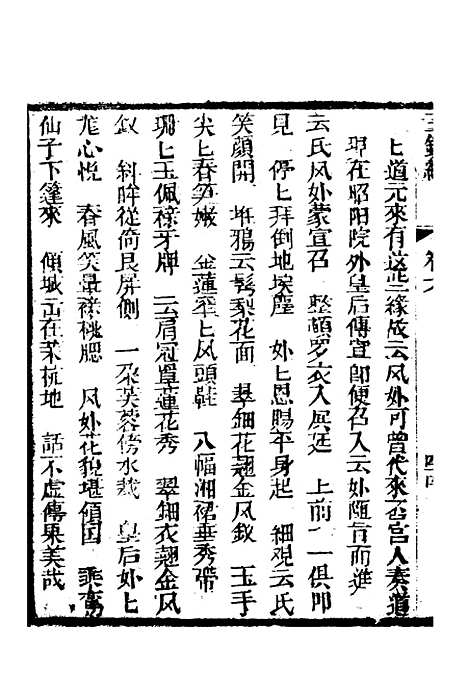 上道元來有这些緣故云风妣可曾代來否宮人奏道
現在昭阳院外皇后傳宣即便召入云妣随旨而進
云氏风妣蒙宣召　整頓罗衣入鳳廷　上前一一俱叩
見　停上拜倒地埃塵　妣上恩賜平身起　細观云氏
笑顏開　堆鴉云髩梨花面　翠鈿花翹金凤釵　玉手
尖上春笋嫩　金蓮窄上凤頭鞋　八幅湘裙垂秀带
珊上玉佩襯牙牌　云肩冠罩蓮花秀　翠鈿衣翹金凤
釵　斜眸從倚艮屏側　一朶芙蓉傍水栽　皇后妣上
龙心悅　春風笑暈襯桃腮　风妣花貌堪傾国
仙子下篷來　傾城云在茉杭地　話不虛傳果美哉
卷六